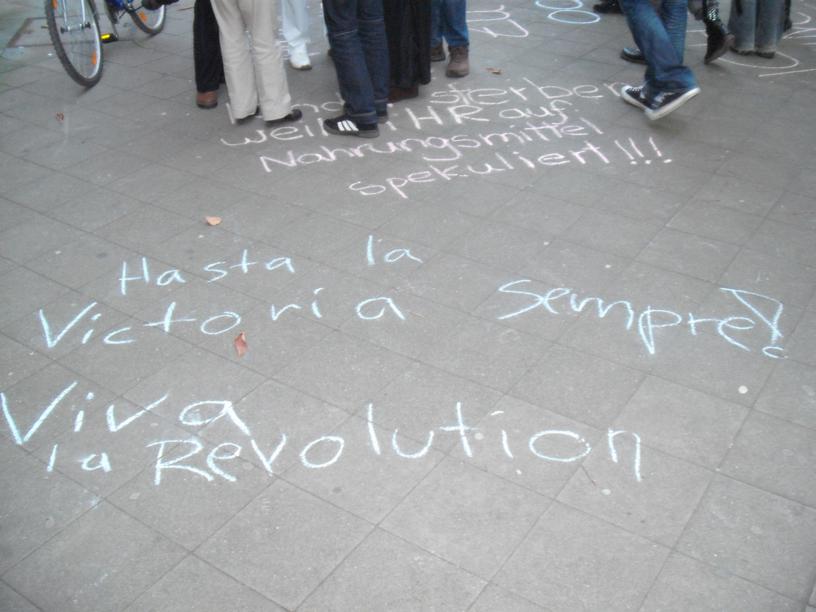 sterben
weil IHR auf
Nahrungsmittel
spekuliert!!!
Hasta la
Victoria Sempre!
Viva
la Revolution